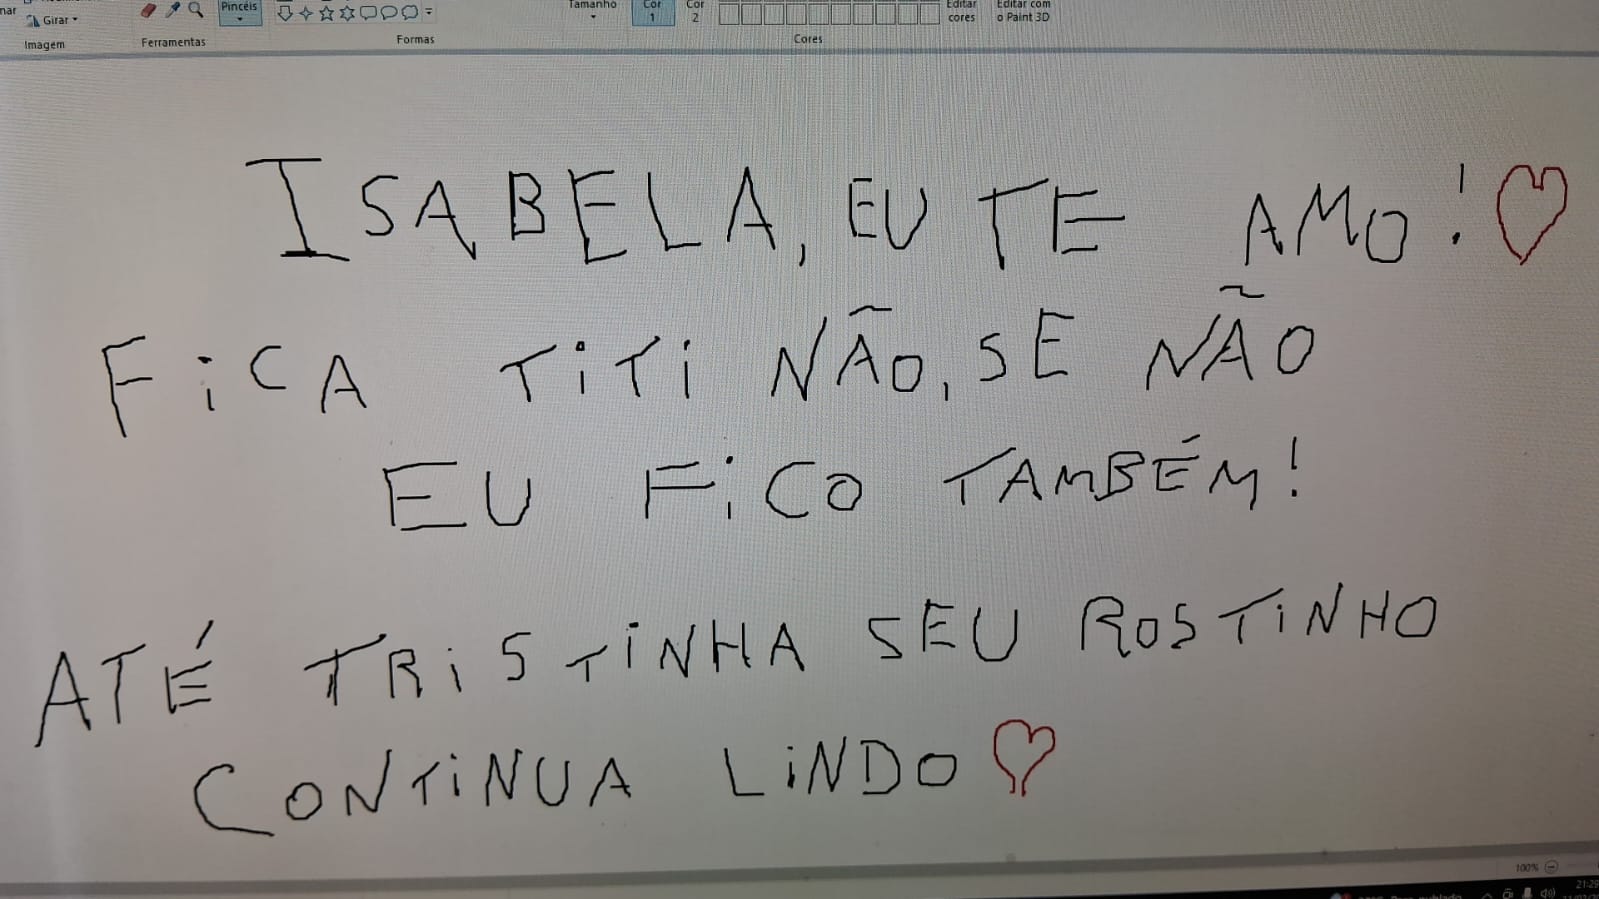 nar
Girar
Imagem
Ferramentas
Pincéis
Formas
Tamanho
Cor 1
Cor 2
Cores
Editar cores
Editar com o Paint 3D
ISABELA, EU TE AMO!
FiCA TiTi NÃO, SE NÃO
EU FiCO TAMBÉM!
ATÉ TRiSTiNHA SEU ROSTiNHO
CONTiNUA LiNDO
100%
21:29